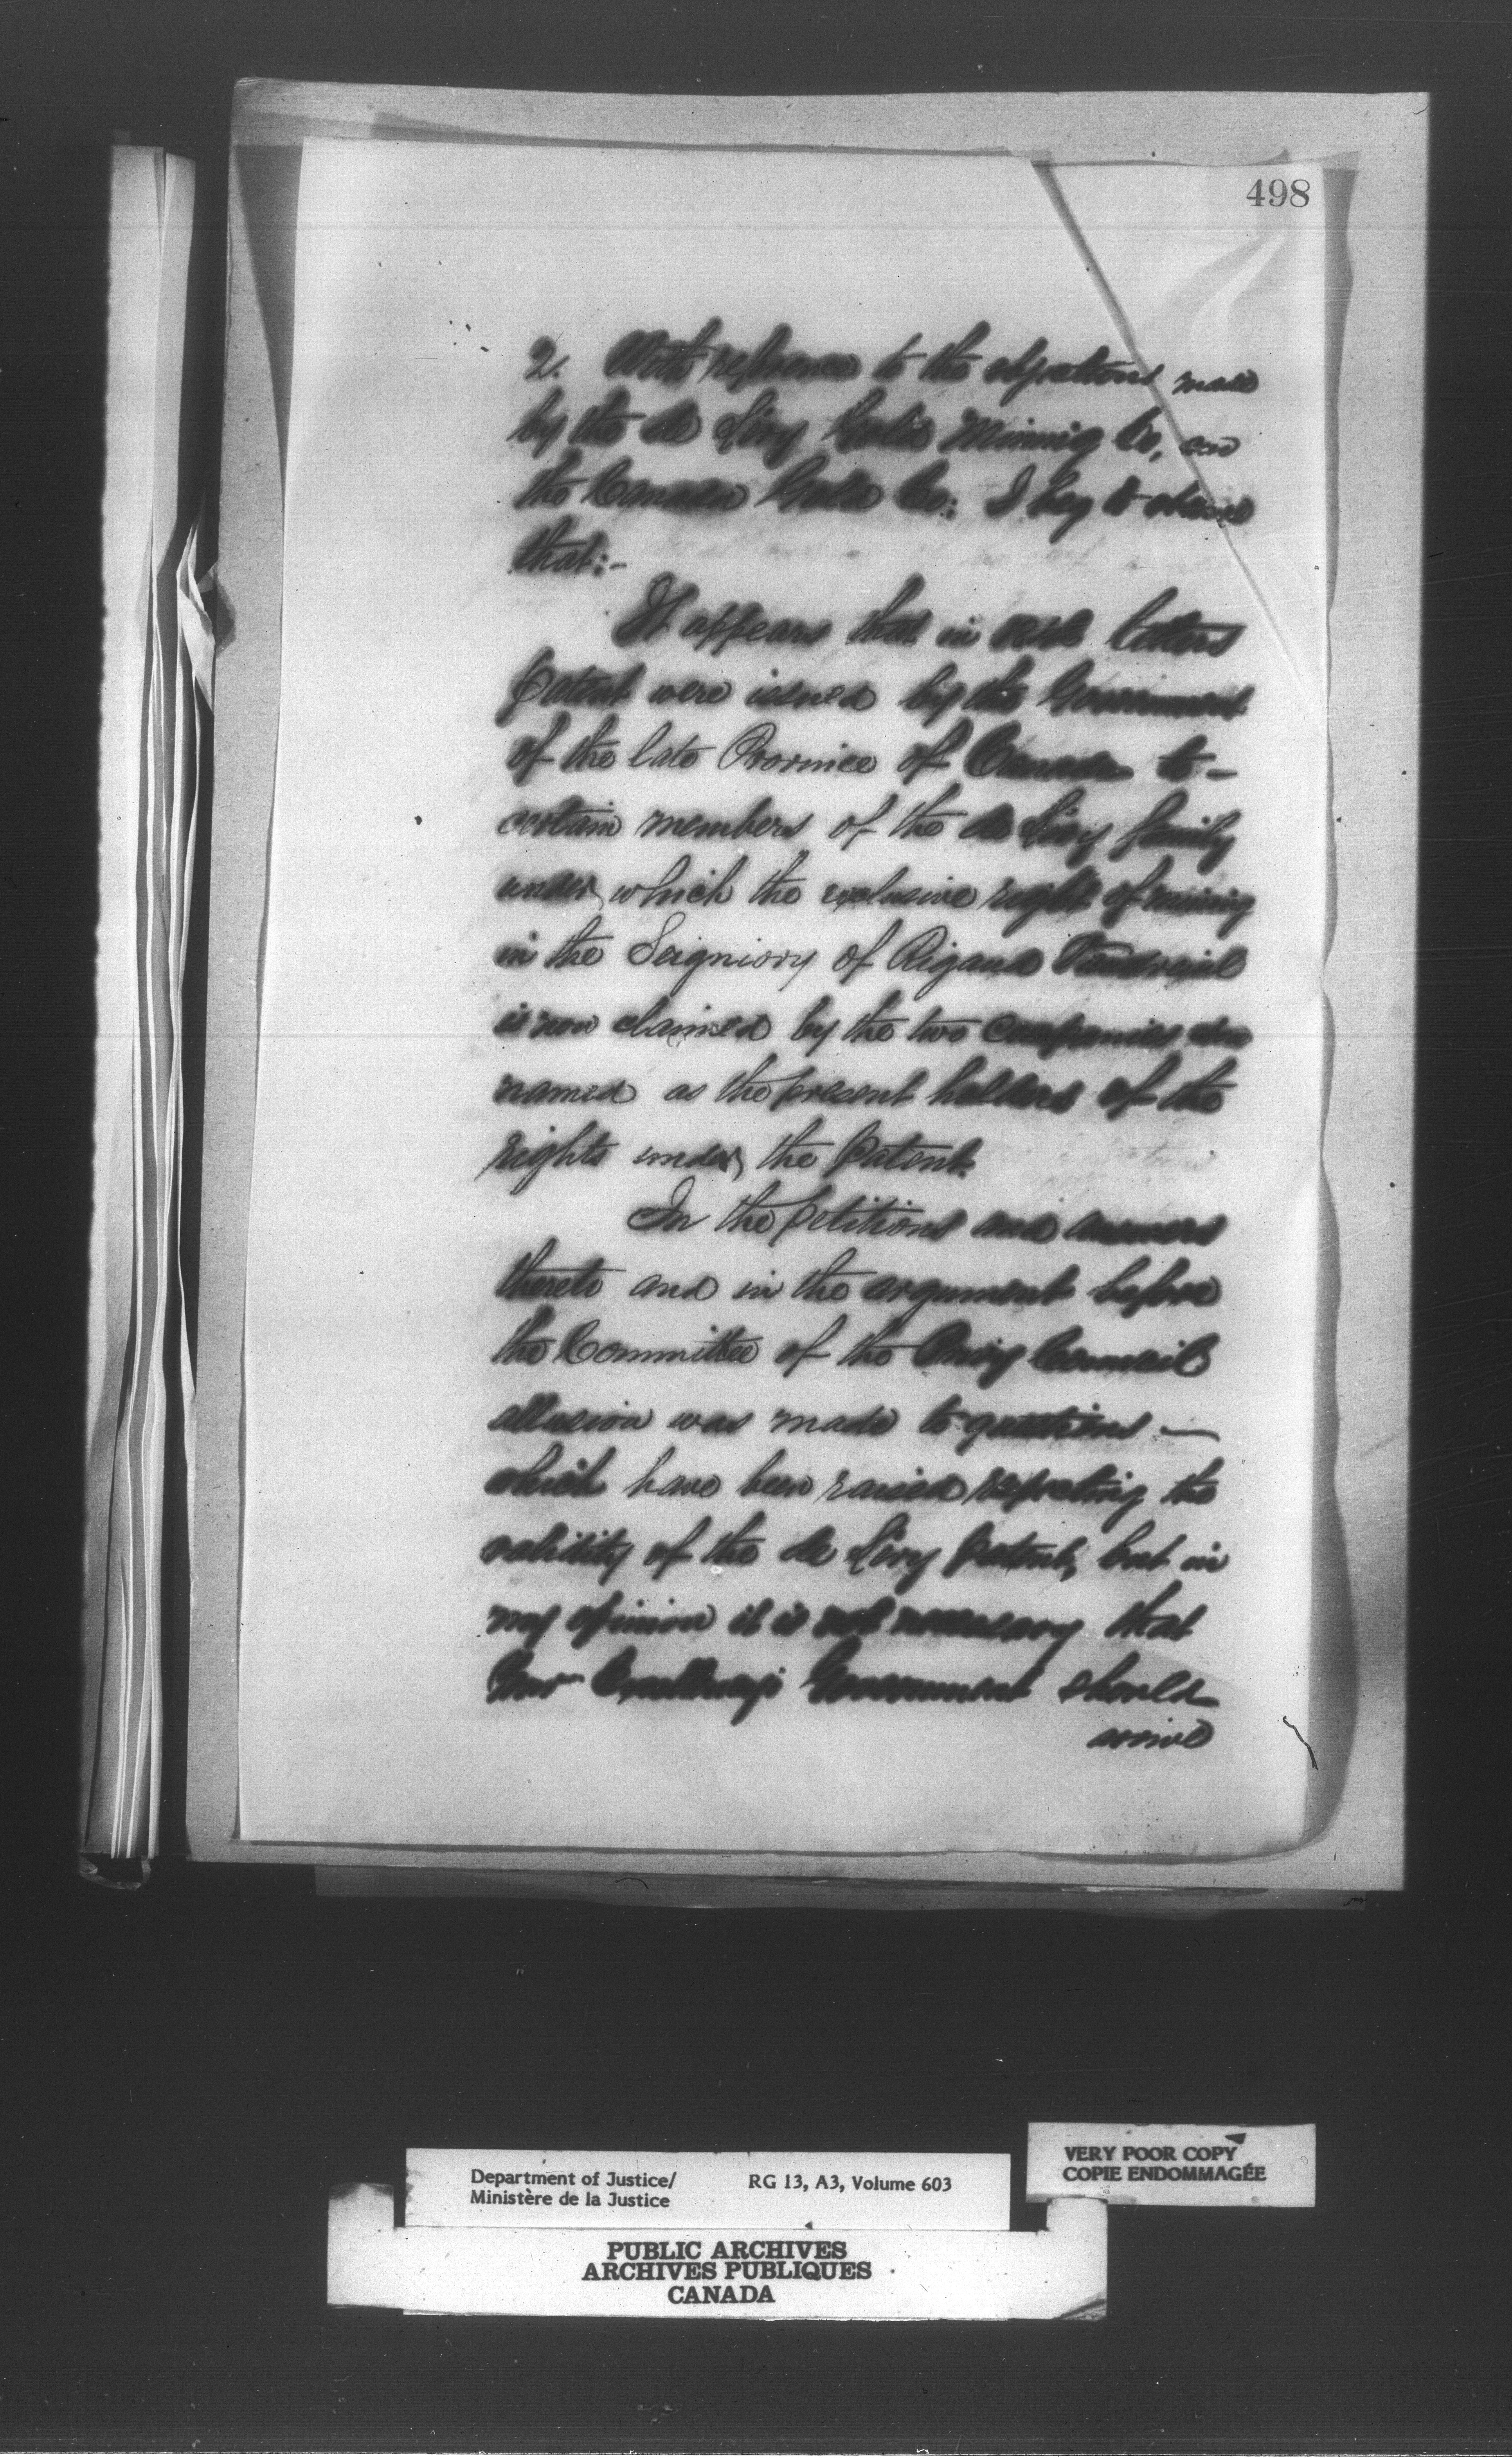 498
2. With reference to the objections made
by the de Léry Gold Mining Co, and
the Canada Gold Co: I beg to observe
that:-
It appears that in letters
patent were issued by the Government
of the late Province of Canada to-
certain members of the de Léry family
under which the exclusive right of mining
in the Seigniory of Rigaud Vaudreuil
is now claimed by the two Companies
named as the present holders of the
rights under the Patent.
In the petitions and answers
thereto and in the argument before
the Committee of the Privy Council
allusion was made to questions —
which have been raised respecting the
validity of the de Léry patent, but in
my opinion it is not necessary that
Your Excellency's Government should
arrive
Department of Justice/ RG 13, A3, Volume 603
Ministère de la Justice
VERY POOR COPY
COPIE ENDOMMAGÉE
PUBLIC ARCHIVES
ARCHIVES PUBLIQUES
CANADA